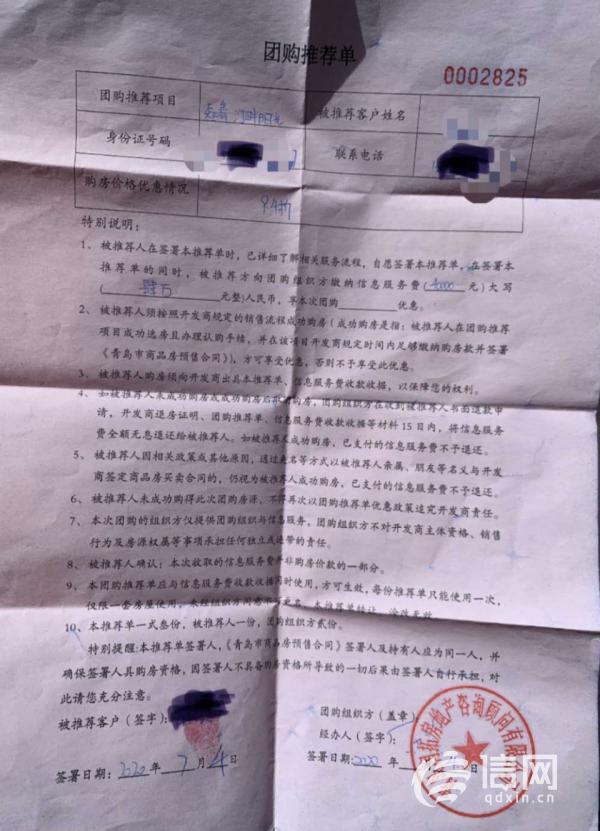 团购推荐单
0002825
团购推荐项目
被推荐客户姓名
身份证号码
联系电话
购房价格优惠情况
9.4折
特别说明：
1、被推荐人在签署本推荐单时，已详细了解相关服务流程，自愿签署本推荐单，在签署本
推荐单的同时，被推荐方向团购组织方缴纳信息服务费（元）大写
（肆万元整）人民币，享本次团购优惠。
2、被推荐人须按照开发商规定的销售流程成功购房（成功购房是指：被推荐人在团购推荐
项目成功选房且办理认购手续，并在该项目开发商规定时间内足够缴纳购房款并签署
《青岛市商品房预售合同》），方可享受优惠，否则不予享受此优惠。
3、被推荐人购房须向开发商出具本推荐单、信息服务费收款收据，以保障您的权利。
4、如被推荐人未成功购房或成功购房后购房，团购组织方在收到被推荐人书面退款申
请，开发商退房证明、团购推荐单、信息服务费收款收据等材料15日内，将信息服务
费全额无息退还给被推荐人。如被推荐人成功购房，已支付的信息服务费不予退还。
5、被推荐人因相关政策或其他原因，通过更名等方式以被推荐人亲属、朋友等名义与开发
商签定商品房买卖合同的，仍视为被推荐人成功购房，已支付的信息服务费不予退还。
6、被推荐人未成功购得此次团购房源，不得再次以团购推荐单优惠政策追究开发商责任。
7、本次团购的组织方仅提供团购组织与信息服务，团购组织方不对开发商主体资格、销售
行为及房源权属等事项承担任何独立或连带的责任。
8、被推荐人确认：本次收取的信息服务费并非购房价款的一部分。
9、本团购推荐单应与信息服务费收款收据同时使用，方可生效，每份推荐单只能使用一次，
仅限一套房屋使用，未经组织方同意不可更名，本推荐单转让、涂改无效
10、本推荐单一式叁份，被推荐人一份，团购组织方贰份。
特别提醒：本推荐单签署人，《青岛市商品房预售合同》签署人及持有人应为同一人，并
确保签署人具购房资格，因签署人不具备购房资格所导致的一切后果由签署人自行承担，对
此请您充分注意。
被推荐客户（签字）：
团购组织方（盖章）：
经办人（签字）：
签署日期：2020年7月4日
签署日期：2020年
房地产咨询顾问有限公司
信网
qdxin.cn